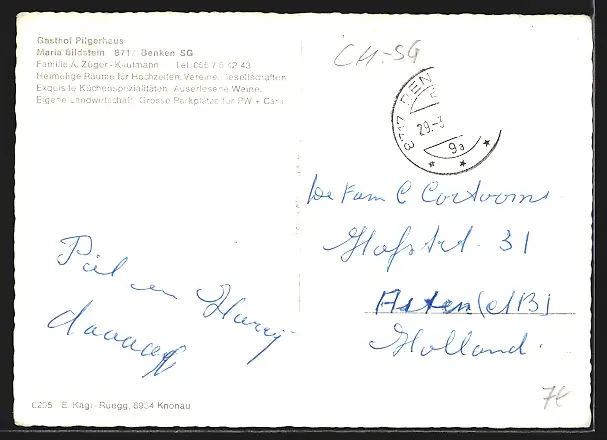 Gasthof Pilgerhaus
Maria Bildstein 8717 Benken SG
Familie A. Züger-Kaufmann Tel. 055 / 8 42 43
Heimelige Räume für Hochzeiten, Vereine, Gesellschaften
Exquisite Küchenspezialitäten. Auserlesene Weine.
Eigene Landwirtschaft. Grosse Parkplätze für PW + Cars
CH-SG
8717 BEN
29.-3
9a
De Fam C Cortooms
Hofstr. 31
Asten (NB)
Holland.
Piet en Harrij
6205 E. Kägi-Rüegg, 8934 Knonau
7€